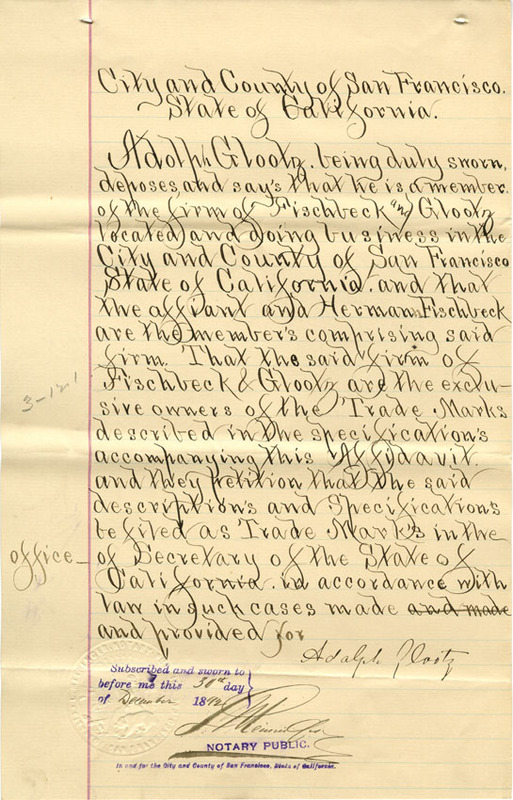 City and County of San Francisco.
State of California.
Adolph Glootz, being duly sworn,
deposes and say's that he is a member
of the firm of Fischbeck and Glootz
located and doing business in the
City and County of San Francisco
State of California. and that
the affiant and Herman Fischbeck
are the member's comprising said
firm. That the said firm of
Fischbeck & Glootz are the exclu-
sive owners of the Trade Marks
described in the specification's
accompanying this Affidavit.
and they petition that the said
description's and Specification's
be filed as Trade Mark's in the
office
of Secretary of the State of
California. in accordance with
law in such cases made and made
and provided for
Adolph Glootz
Subscribed and sworn to
before me this 30th day
of December 1892
NOTARY PUBLIC.
In and for the City and County of San Francisco, State of California.